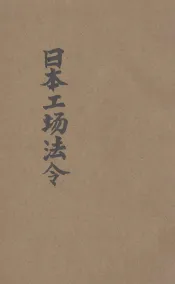 日本工场法令